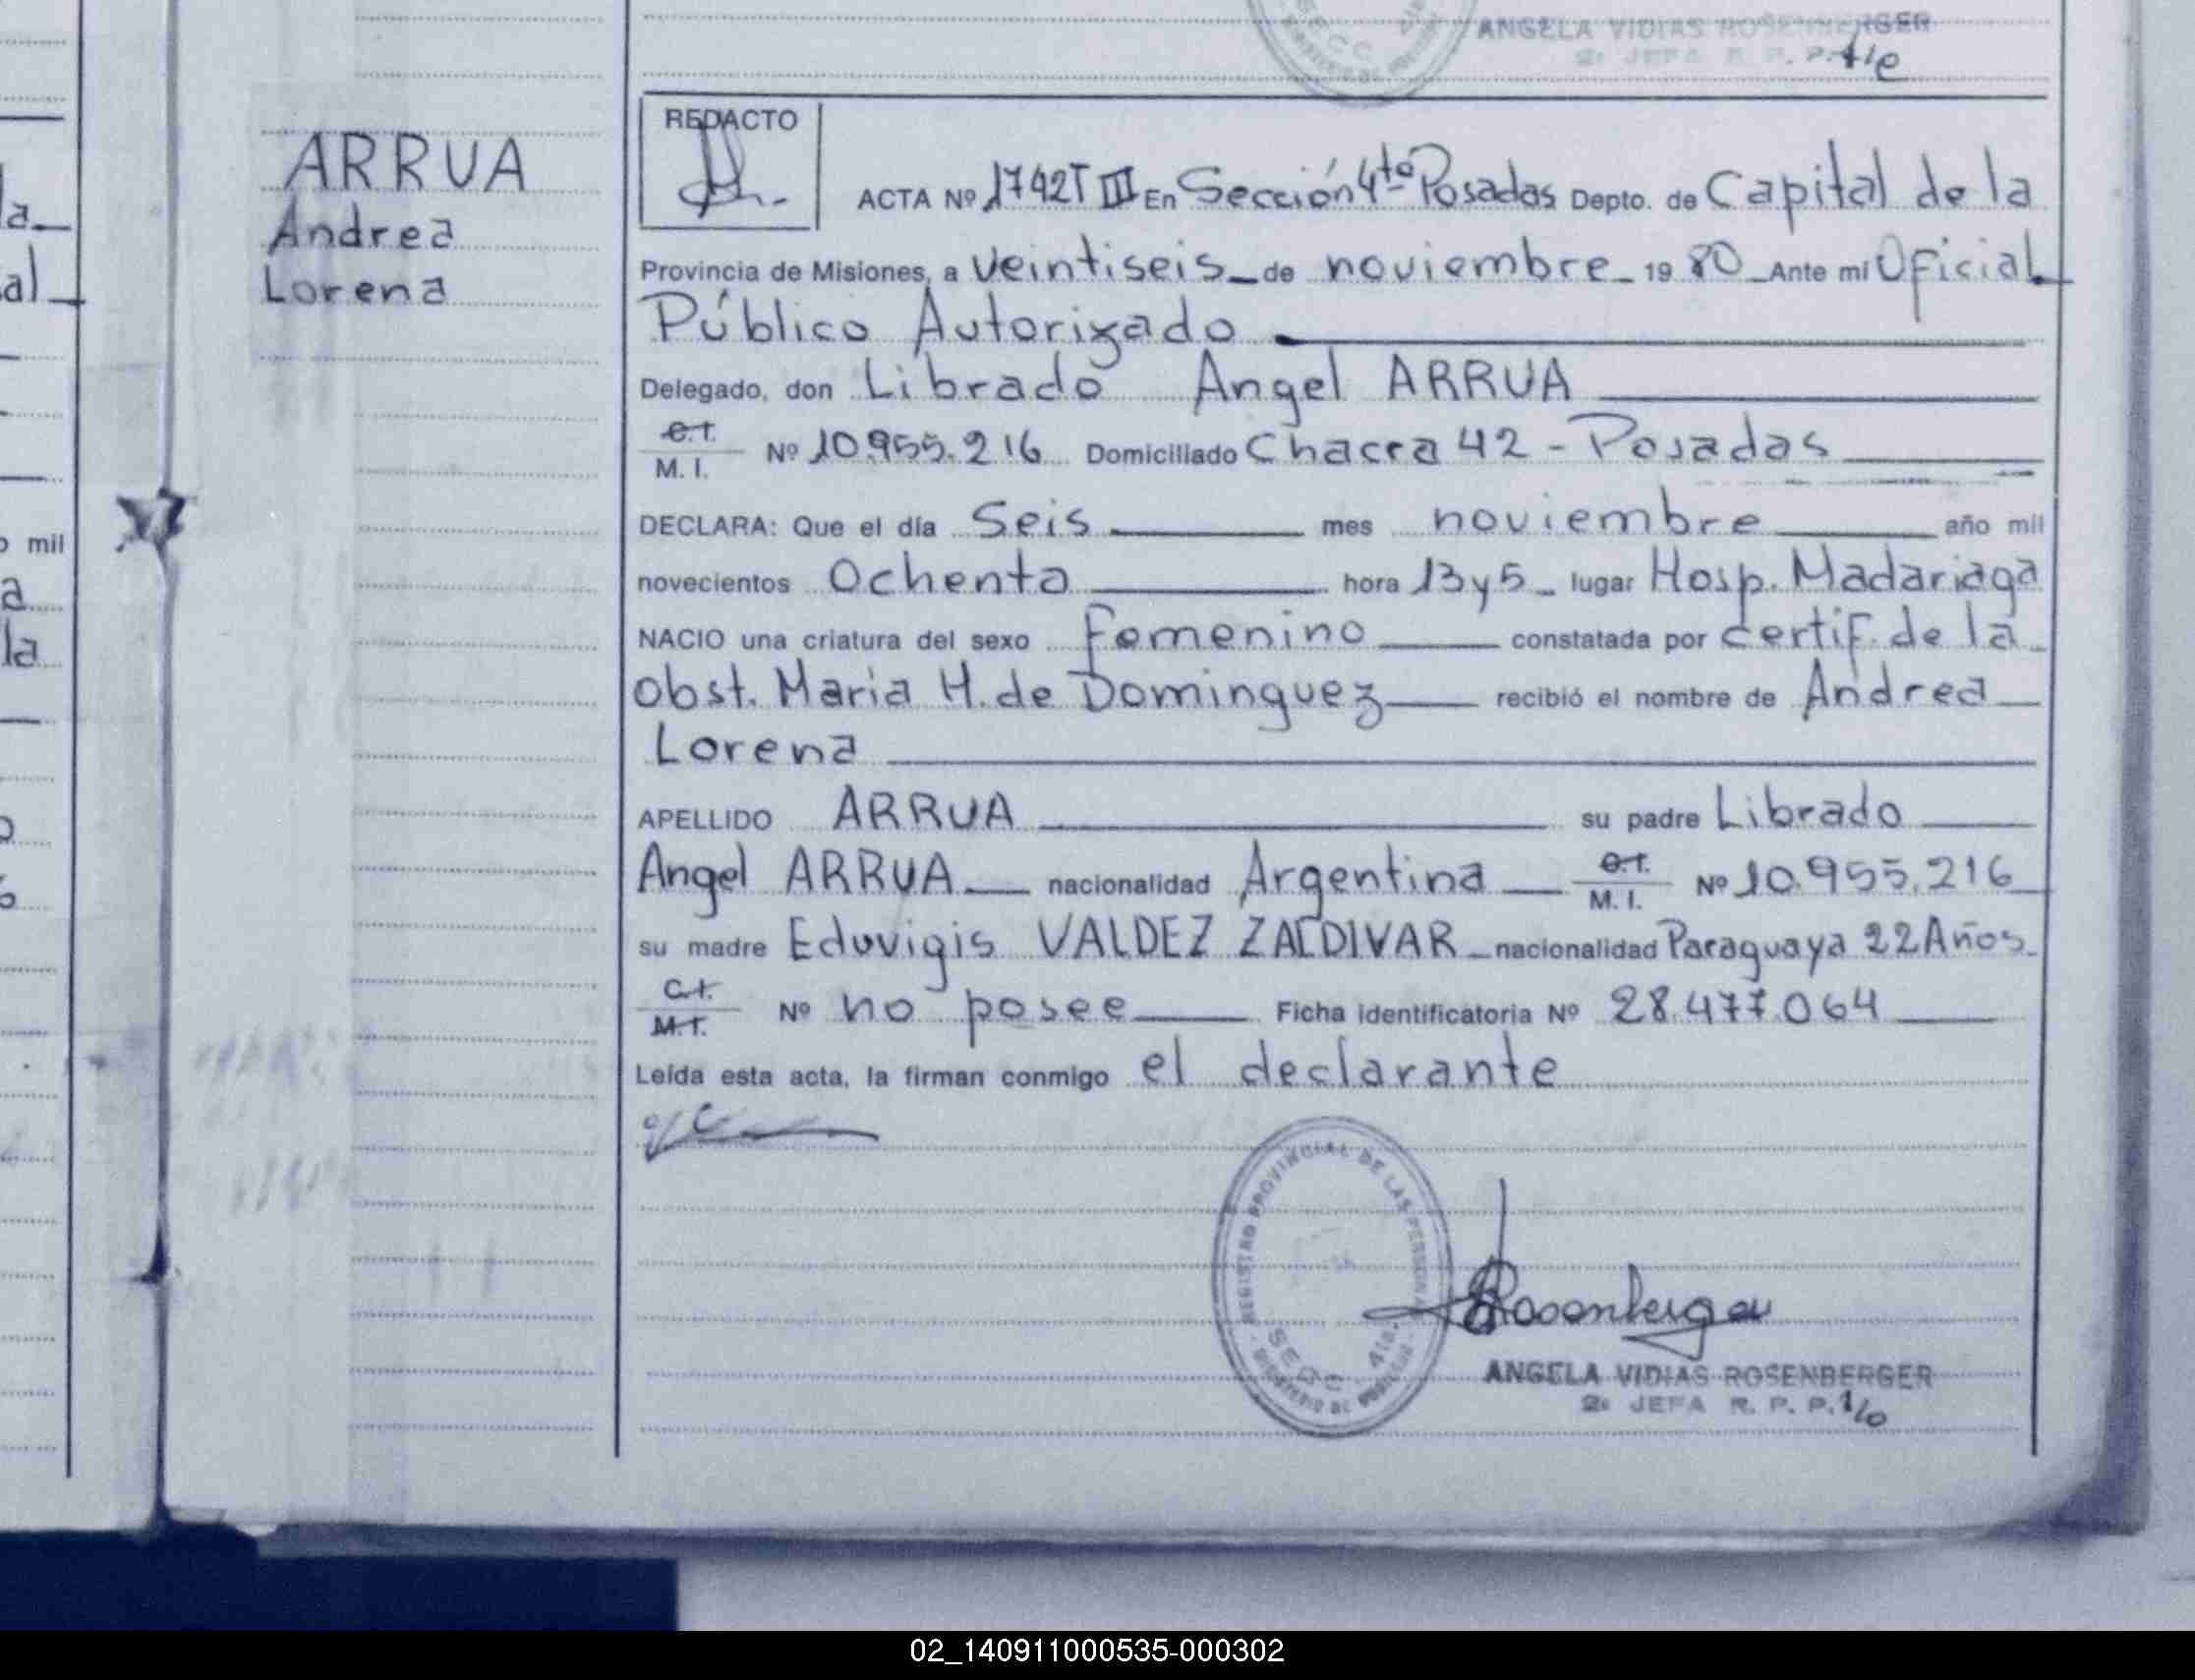 ANGELA VIDIAS ROSENBERGER
2: JEFA R. P. P.
la
al
mil
a
la
ARRUA
Andrea
Lorena
REDACTO
ACTA Nº 1742 T III En Sección 4ta Posadas Depto. de Capital de la
Provincia de Misiones, a veintiseis de noviembre 19 80 Ante mí Oficial
Público Autorizado
Delegado, don Librado Angel ARRUA
C.I.
M. I. Nº 10.955.216 Domiciliado Chacra 42 - Posadas
DECLARA: Que el día Seis mes noviembre año mil
novecientos Ochenta hora 13 y 5 lugar Hosp. Madariaga
NACIO una criatura del sexo femenino constatada por certif. de la
obst. Maria H. de Dominguez recibió el nombre de Andrea
Lorena
APELLIDO ARRUA su padre Librado
Angel ARRUA nacionalidad Argentina C.I. M. I. Nº 10.955.216
su madre Eduvigis VALDEZ ZALDIVAR nacionalidad Paraguaya 22 Años
C.I.
M.I. Nº no posee Ficha identificatoria Nº 28.477.064
Leída esta acta, la firman conmigo el declarante
REGISTRO PROVINCIAL DE LAS PERSONAS
SECC. 4ta.
Rosenberger
ANGELA VIDIAS ROSENBERGER
2: JEFA R. P. P.
02_140911000535-000302